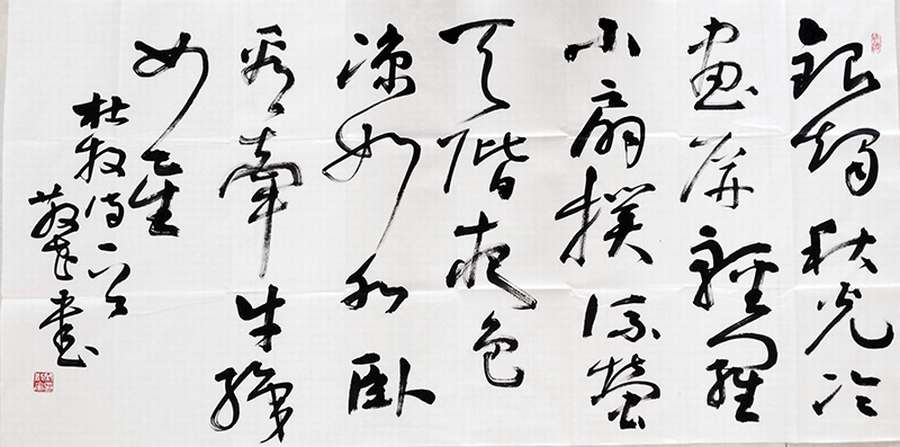 銀燭秋光冷
畫屏輕羅
小扇撲流螢
天階夜色
涼如水臥
看牽牛織
女星
杜牧詩一首
書